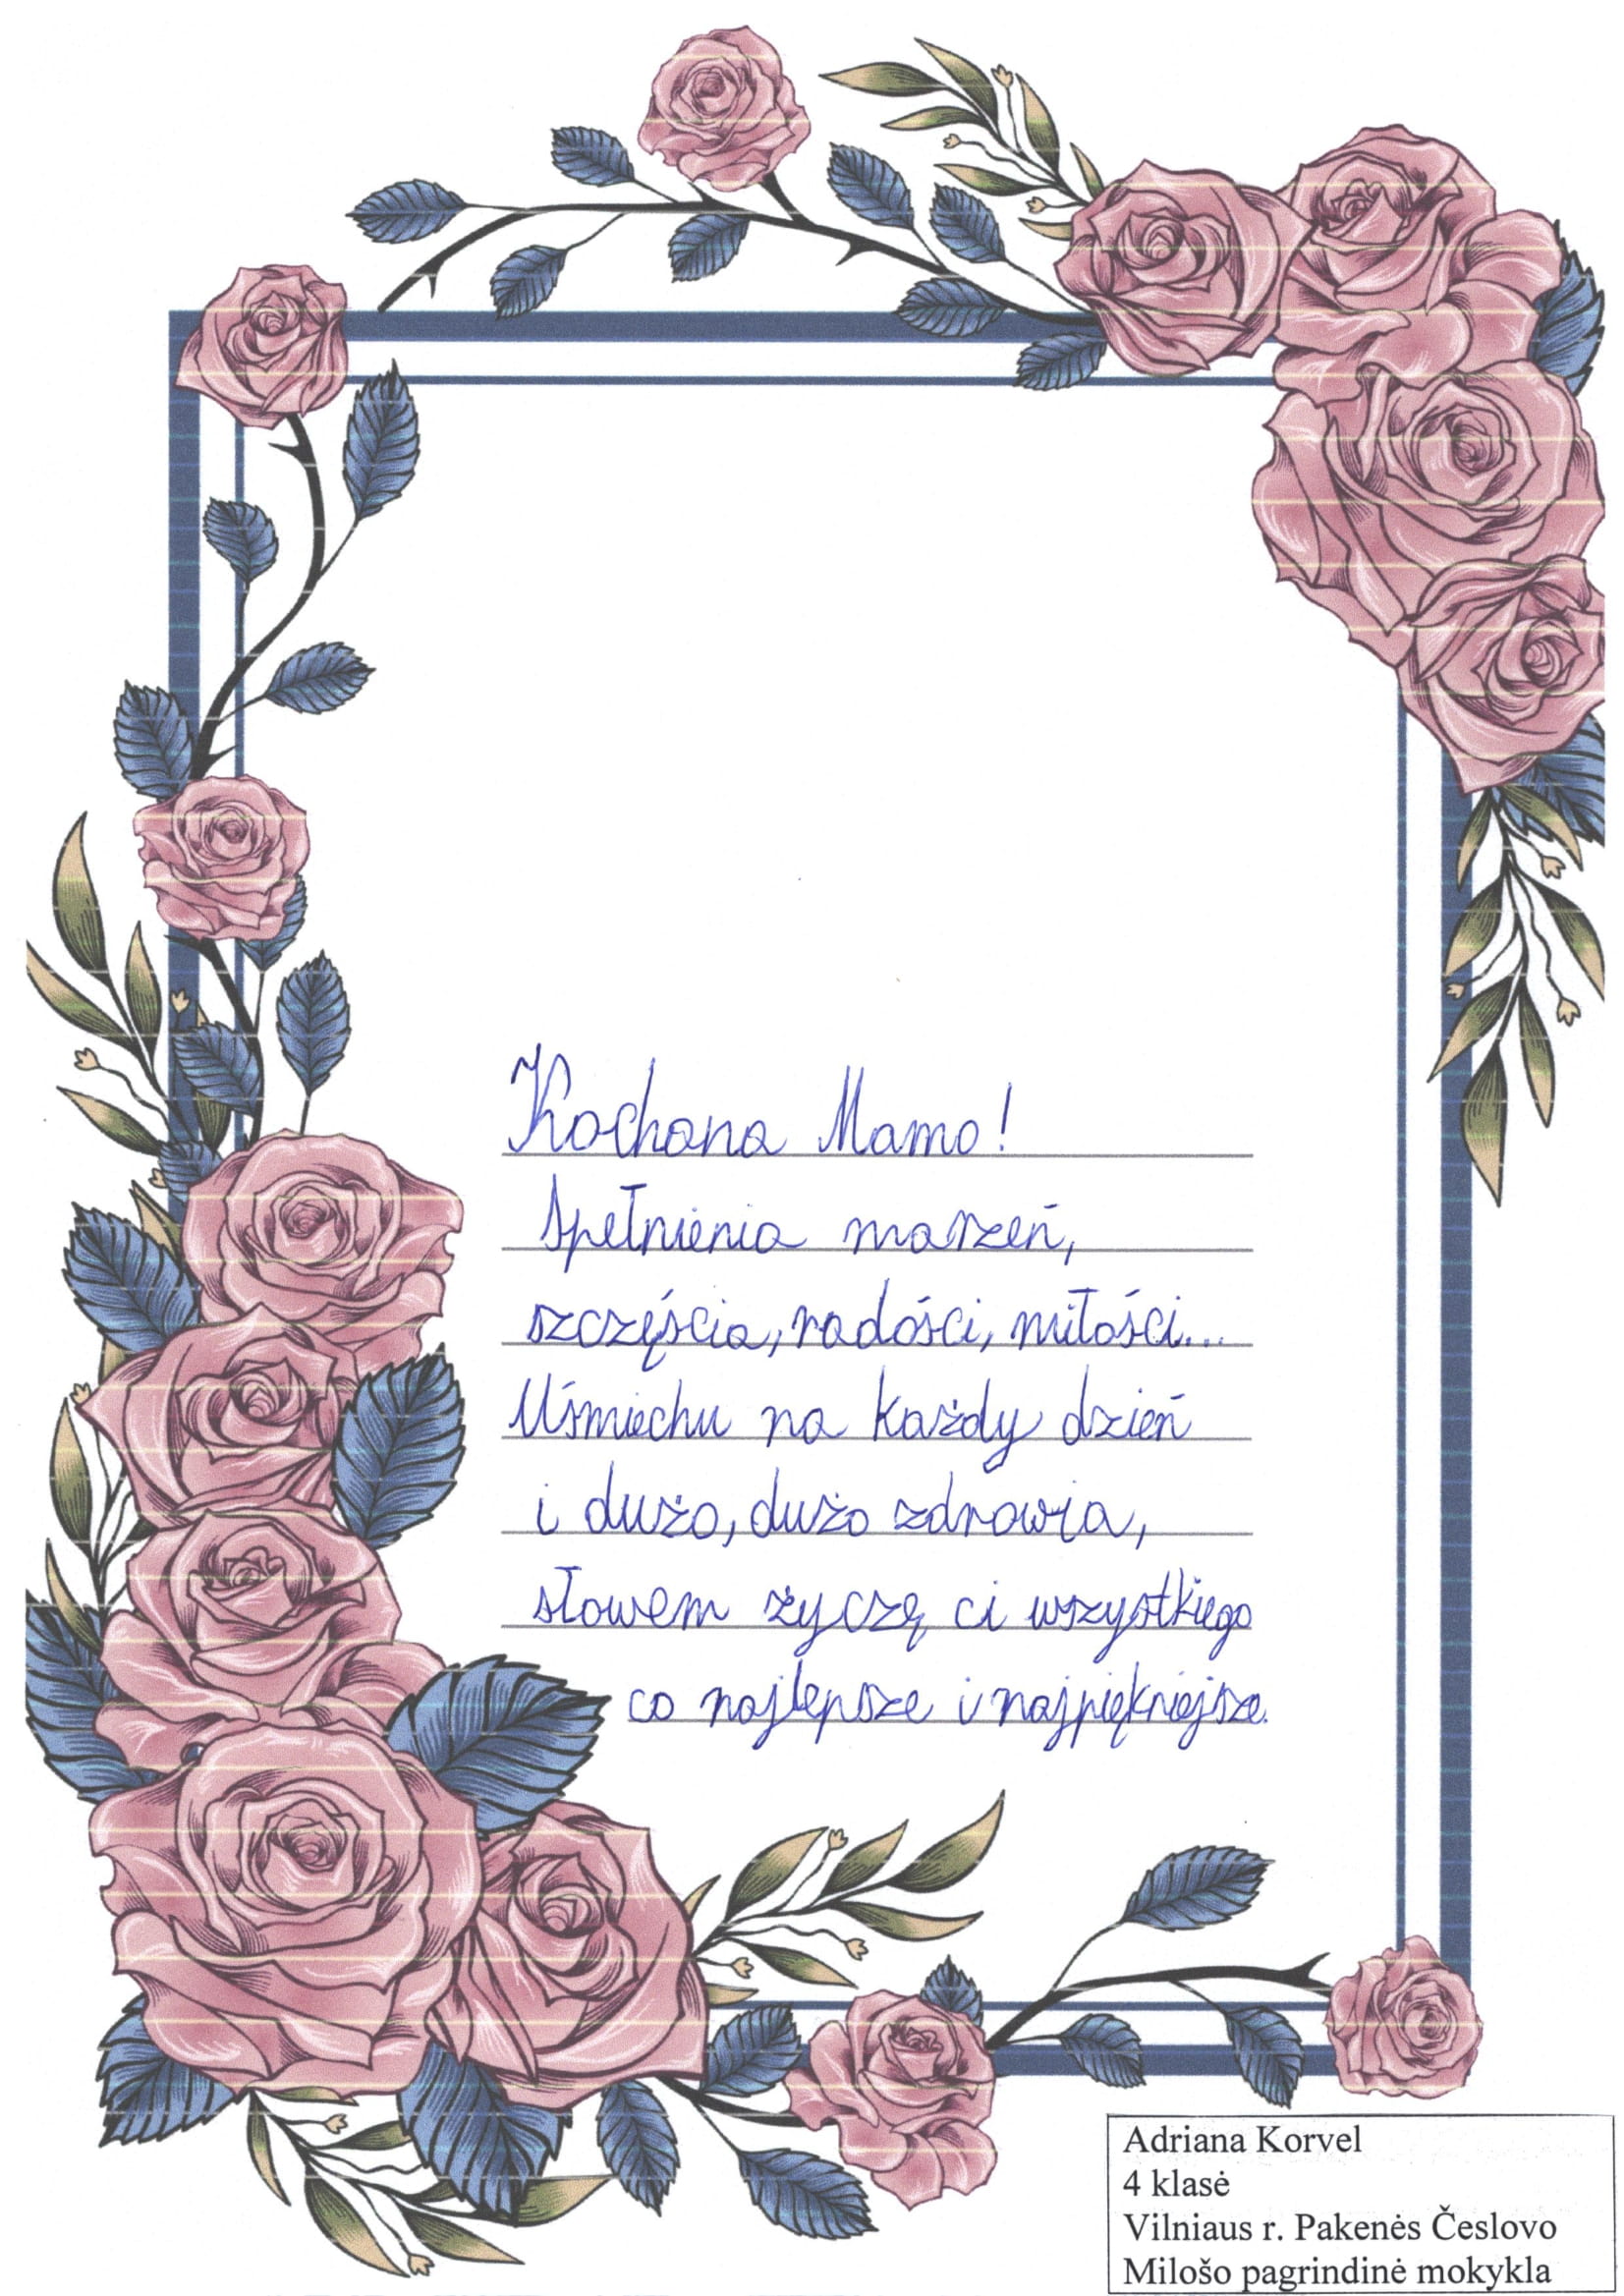 Kochana Mamo!
Spełnienia marzeń,
szczęścia, radości, miłości...
Uśmiechu na każdy dzień
i dużo, dużo zdrowia,
słowem życzę ci wszystkiego
co najlepsze i najpiękniejsze.
Adriana Korvel
4 klasė
Vilniaus r. Pakenės Česlovo
Milošo pagrindinė mokykla